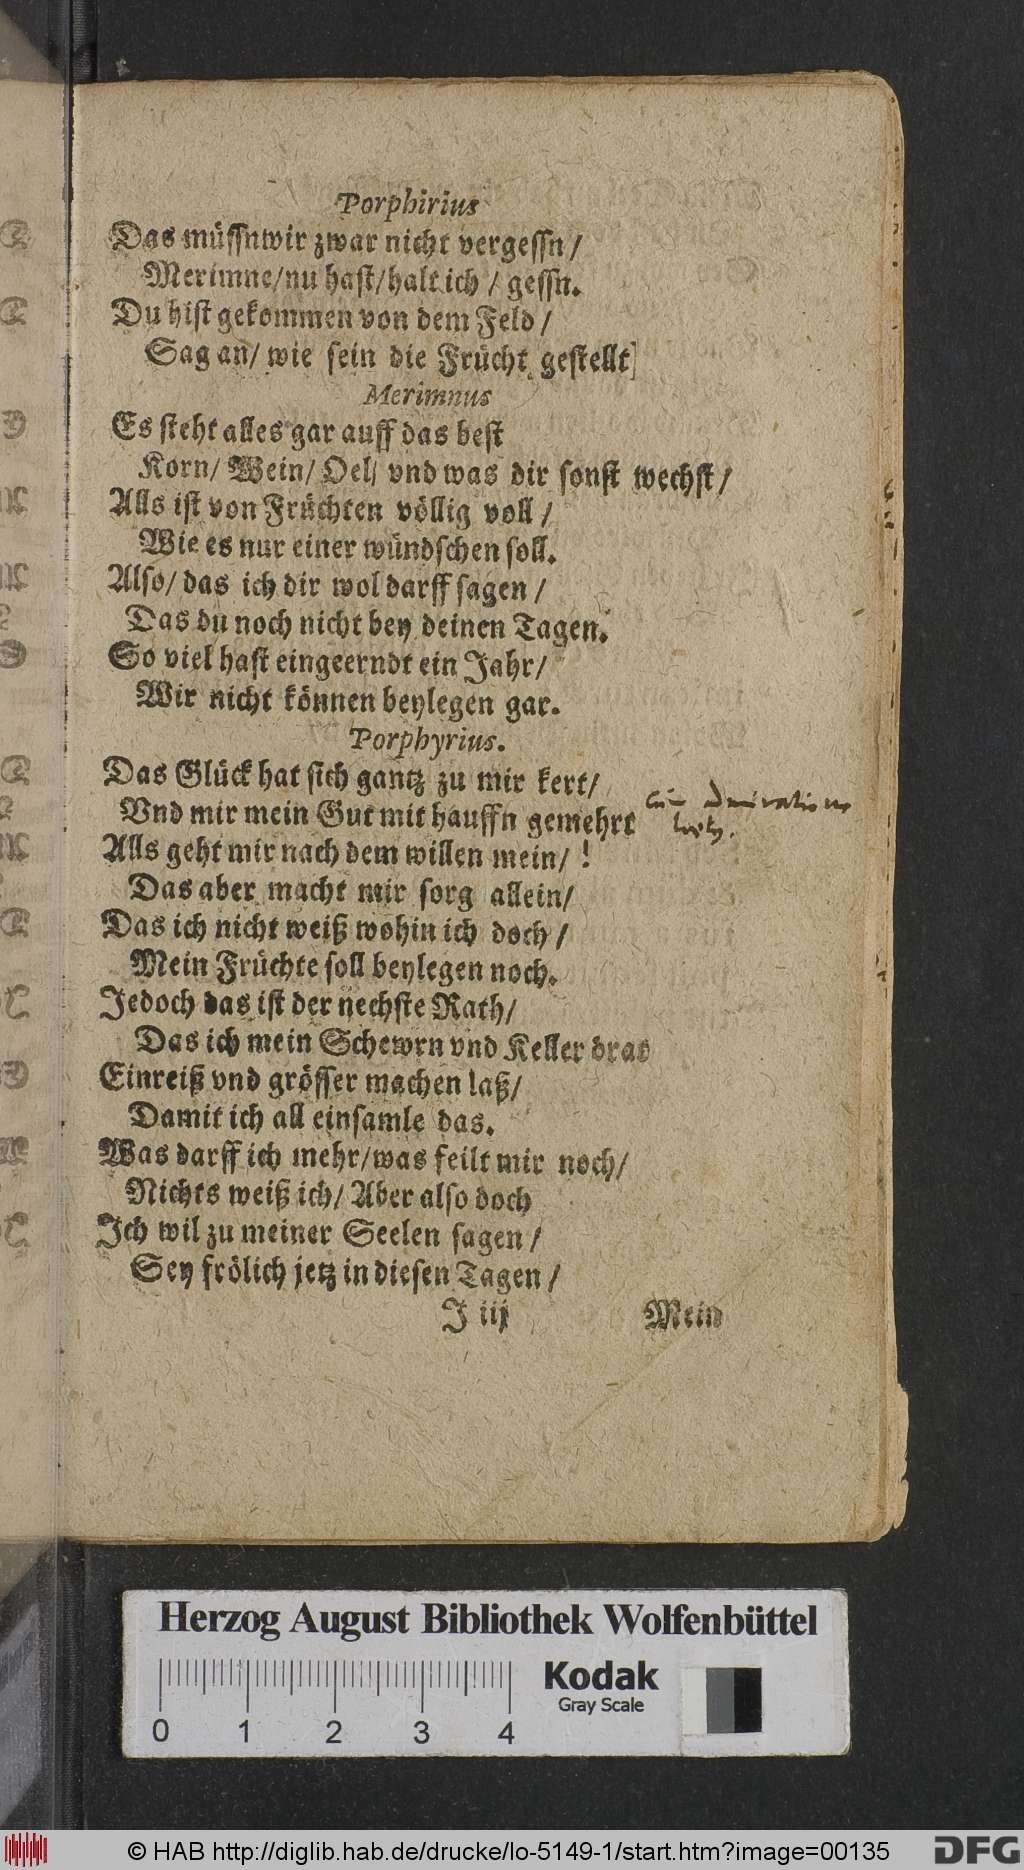 Porphirius
Das müssnwir zwar nicht vergessn /
Merimne/nu hast/halt ich / gessn.
Du hist gekommen von dem Feld /
Sag an/ wie sein die Frücht gestellt]
Merimnus
Es steht alles gar auff das best
Korn/ Wein/ Oel/ vnd was dir sonst wechst /
Alls ist von Früchten völlig voll /
Wie es nur einer wündschen soll.
Also/ das ich dir wol darff sagen /
Das du noch nicht bey deinen Tagen.
So viel hast eingeerndt ein Jahr/
Wir nicht können beylegen gar.
Porphyrius.
Das Glück hat sich gantz zu mir kert/
Vnd mir mein Gut mit hauffn gemehrt
Alls geht mir nach dem willen mein/ !
Das aber macht mir sorg allein/
Das ich nicht weiß wohin ich doch /
Mein Früchte soll beylegen noch.
Jedoch das ist der nechste Rath/
Das ich mein Schewrn vnd Keller drad
Einreiß vnd grösser machen laß/
Damit ich all einsamle das.
Was darff ich mehr/was feilt mir noch/
Nichts weiß ich/ Aber also doch
Ich wil zu meiner Seelen sagen /
Sey frölich jetz in diesen Tagen /
J iij Mein
Herzog August Bibliothek Wolfenbüttel
Kodak
Gray Scale
0 1 2 3 4
© HAB http://diglib.hab.de/drucke/lo-5149-1/start.htm?image=00135
DFG